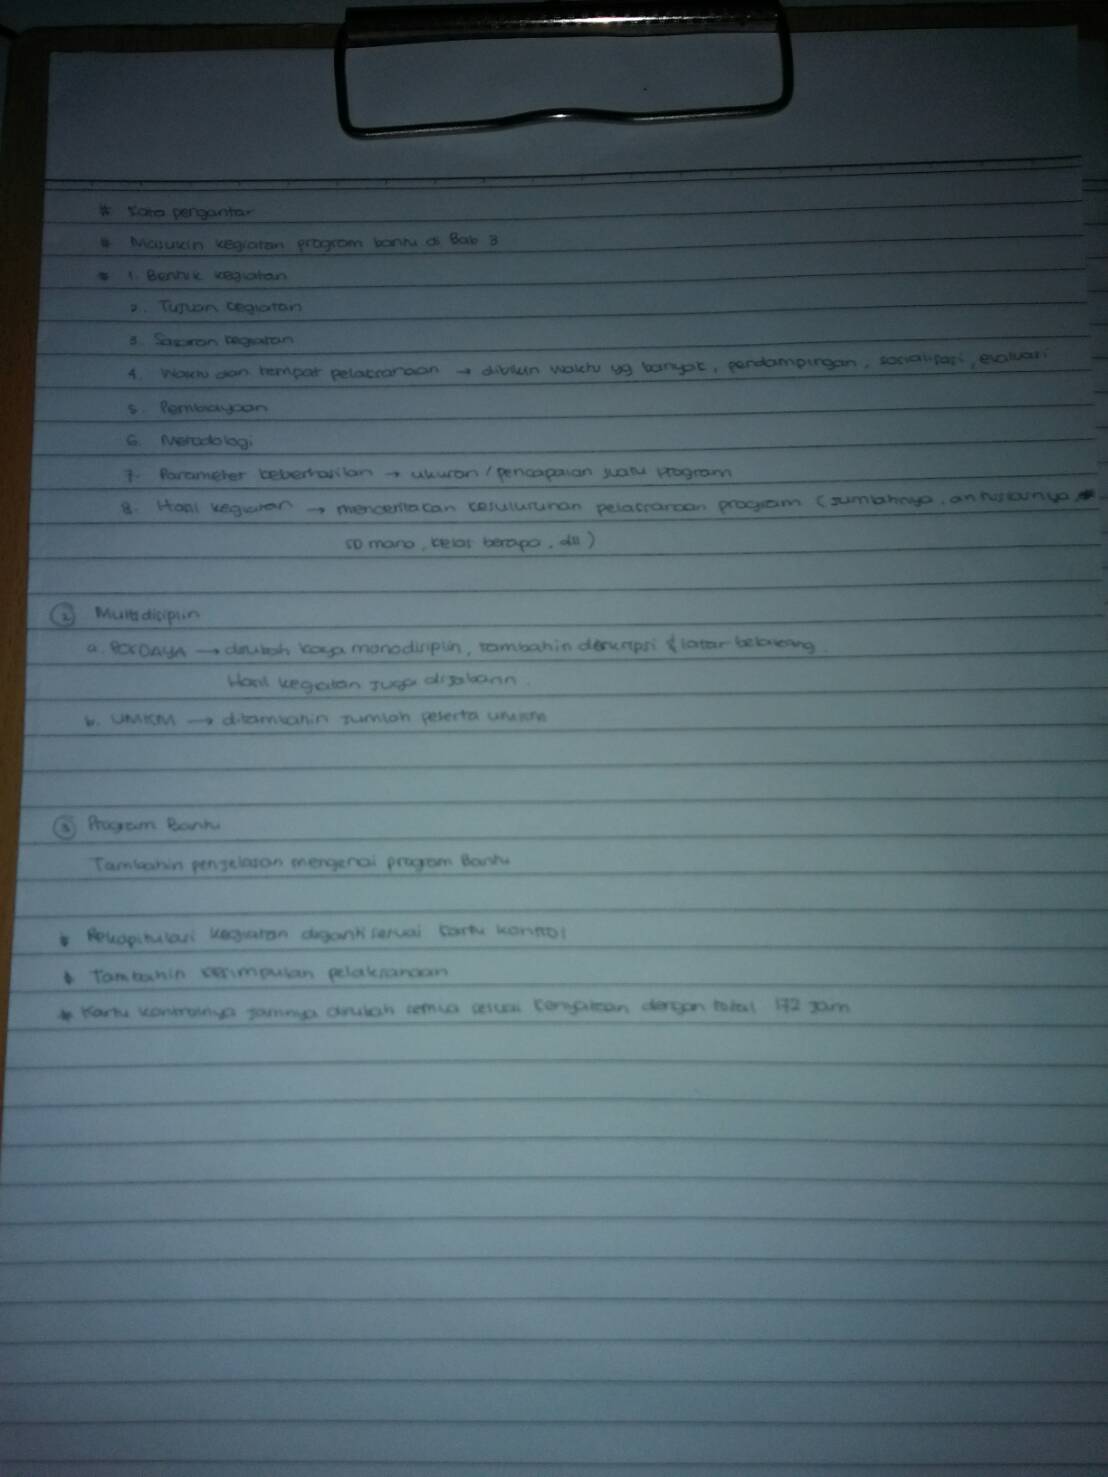 * Kata pengantar
* Masukin kegiatan program bantu di Bab 3
* 1. Bentuk kegiatan
2. Tujuan kegiatan
3. Sasaran kegiatan
4. Waktu dan tempat pelaksanaan → dibikin waktu yg banyak, pendampingan, sosialisasi, evaluasi
5. Pembiayaan
6. Metodologi
7. Parameter keberhasilan → ukuran/pencapaian suatu program
8. Hasil kegiatan → menceritakan keseluruhan pelaksanaan program (jumlahnya, antusiasnya,
SD mana, kelas berapa, dll)
② Multidisiplin
a. POSDAYA → diubah kaya monodisiplin, tambahin deskripsi & latar belakang.
Hasil kegiatan juga dijabarin.
b. UMKM → ditambahin jumlah peserta UMKM
③ Program Bantu
Tambahin penjelasan mengenai program Bantu
* Rekapitulasi kegiatan diganti sesuai kartu kontrol
* Tambahin kesimpulan pelaksanaan
* Kartu kontrolnya jamnya diubah semua sesuai kenyataan dengan total 172 jam